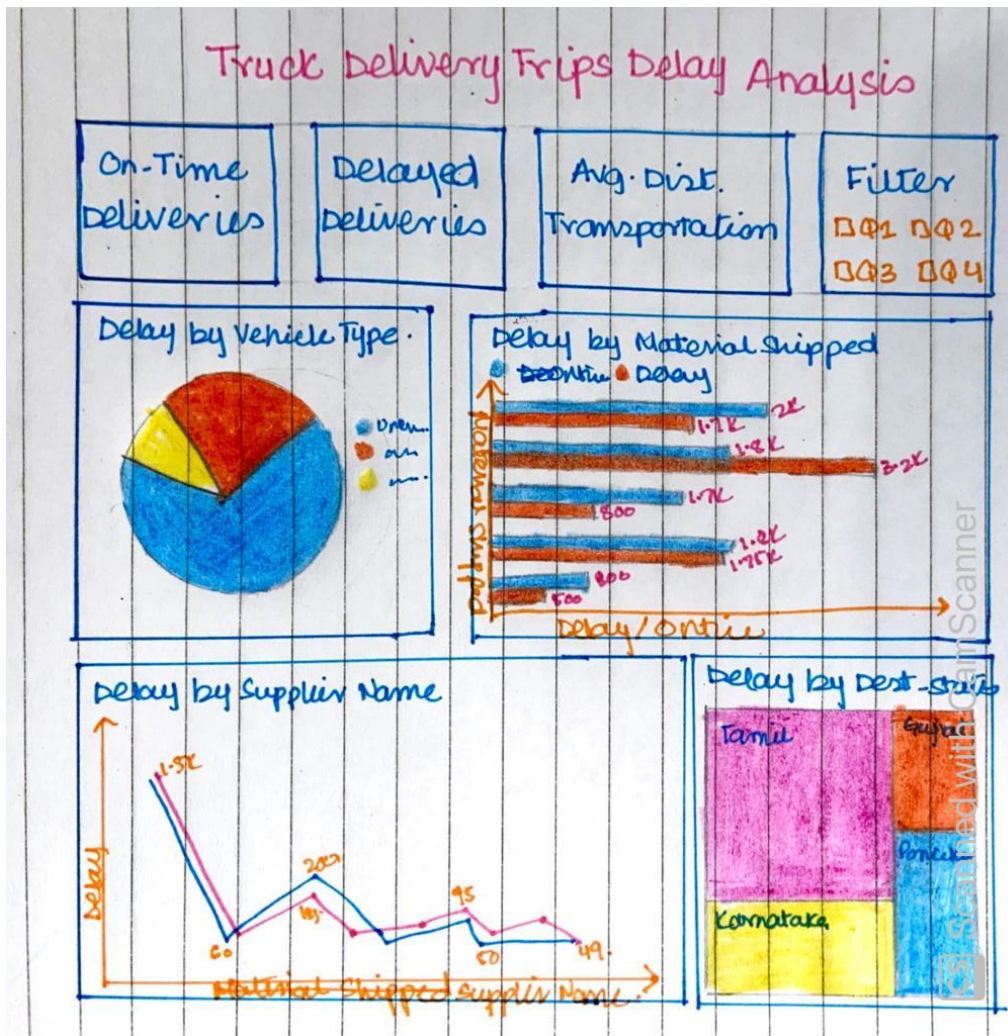 Truck Delivery Trips Delay Analysis
On-Time
Deliveries
Delayed
Deliveries
Avg. Dist.
Transportation
Filter
Q1 Q2
Q3 Q4
Delay by Vehicle Type.
Delay by Material Shipped
Ontim Delay
Material Shipped
2K
1.8K
3.2K
1.7K
800
1.75K
800
500
Delay/Ontim
Delay by Supplier Name
Delay
1.5K
60
200
95
50
49.
Material Shipped Supplier Name.
Delay by Dest-state
Tamil
Gujrat
Karnataka
CS Scanned with CamScanner